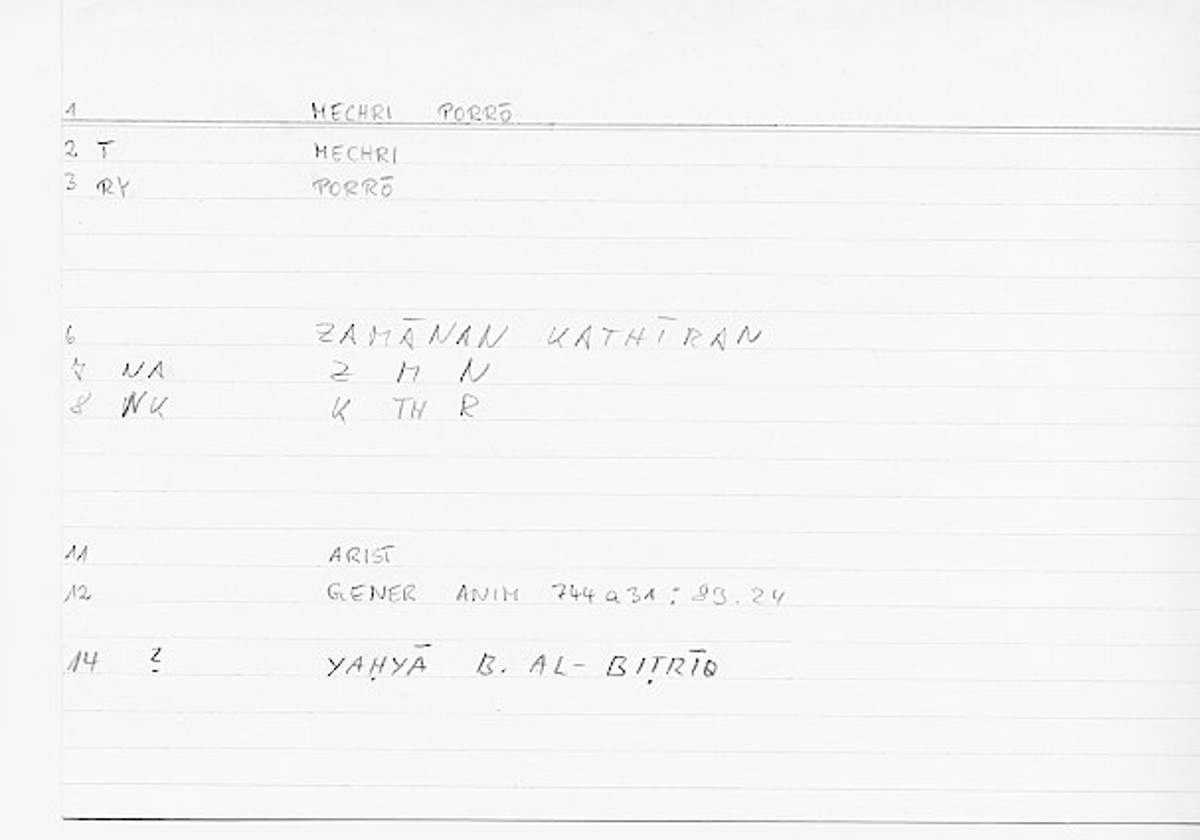 1 MECHRI PORRŌ
2 T MECHRI
3 RY PORRŌ
6 ZAMĀNAN KATHĪRAN
7 NA Z M N
8 NK K TH R
11 ARIST
12 GENER ANIM 744a31 : 83.24
14 ? YAḤYĀ B. AL-BIṬRĪQ